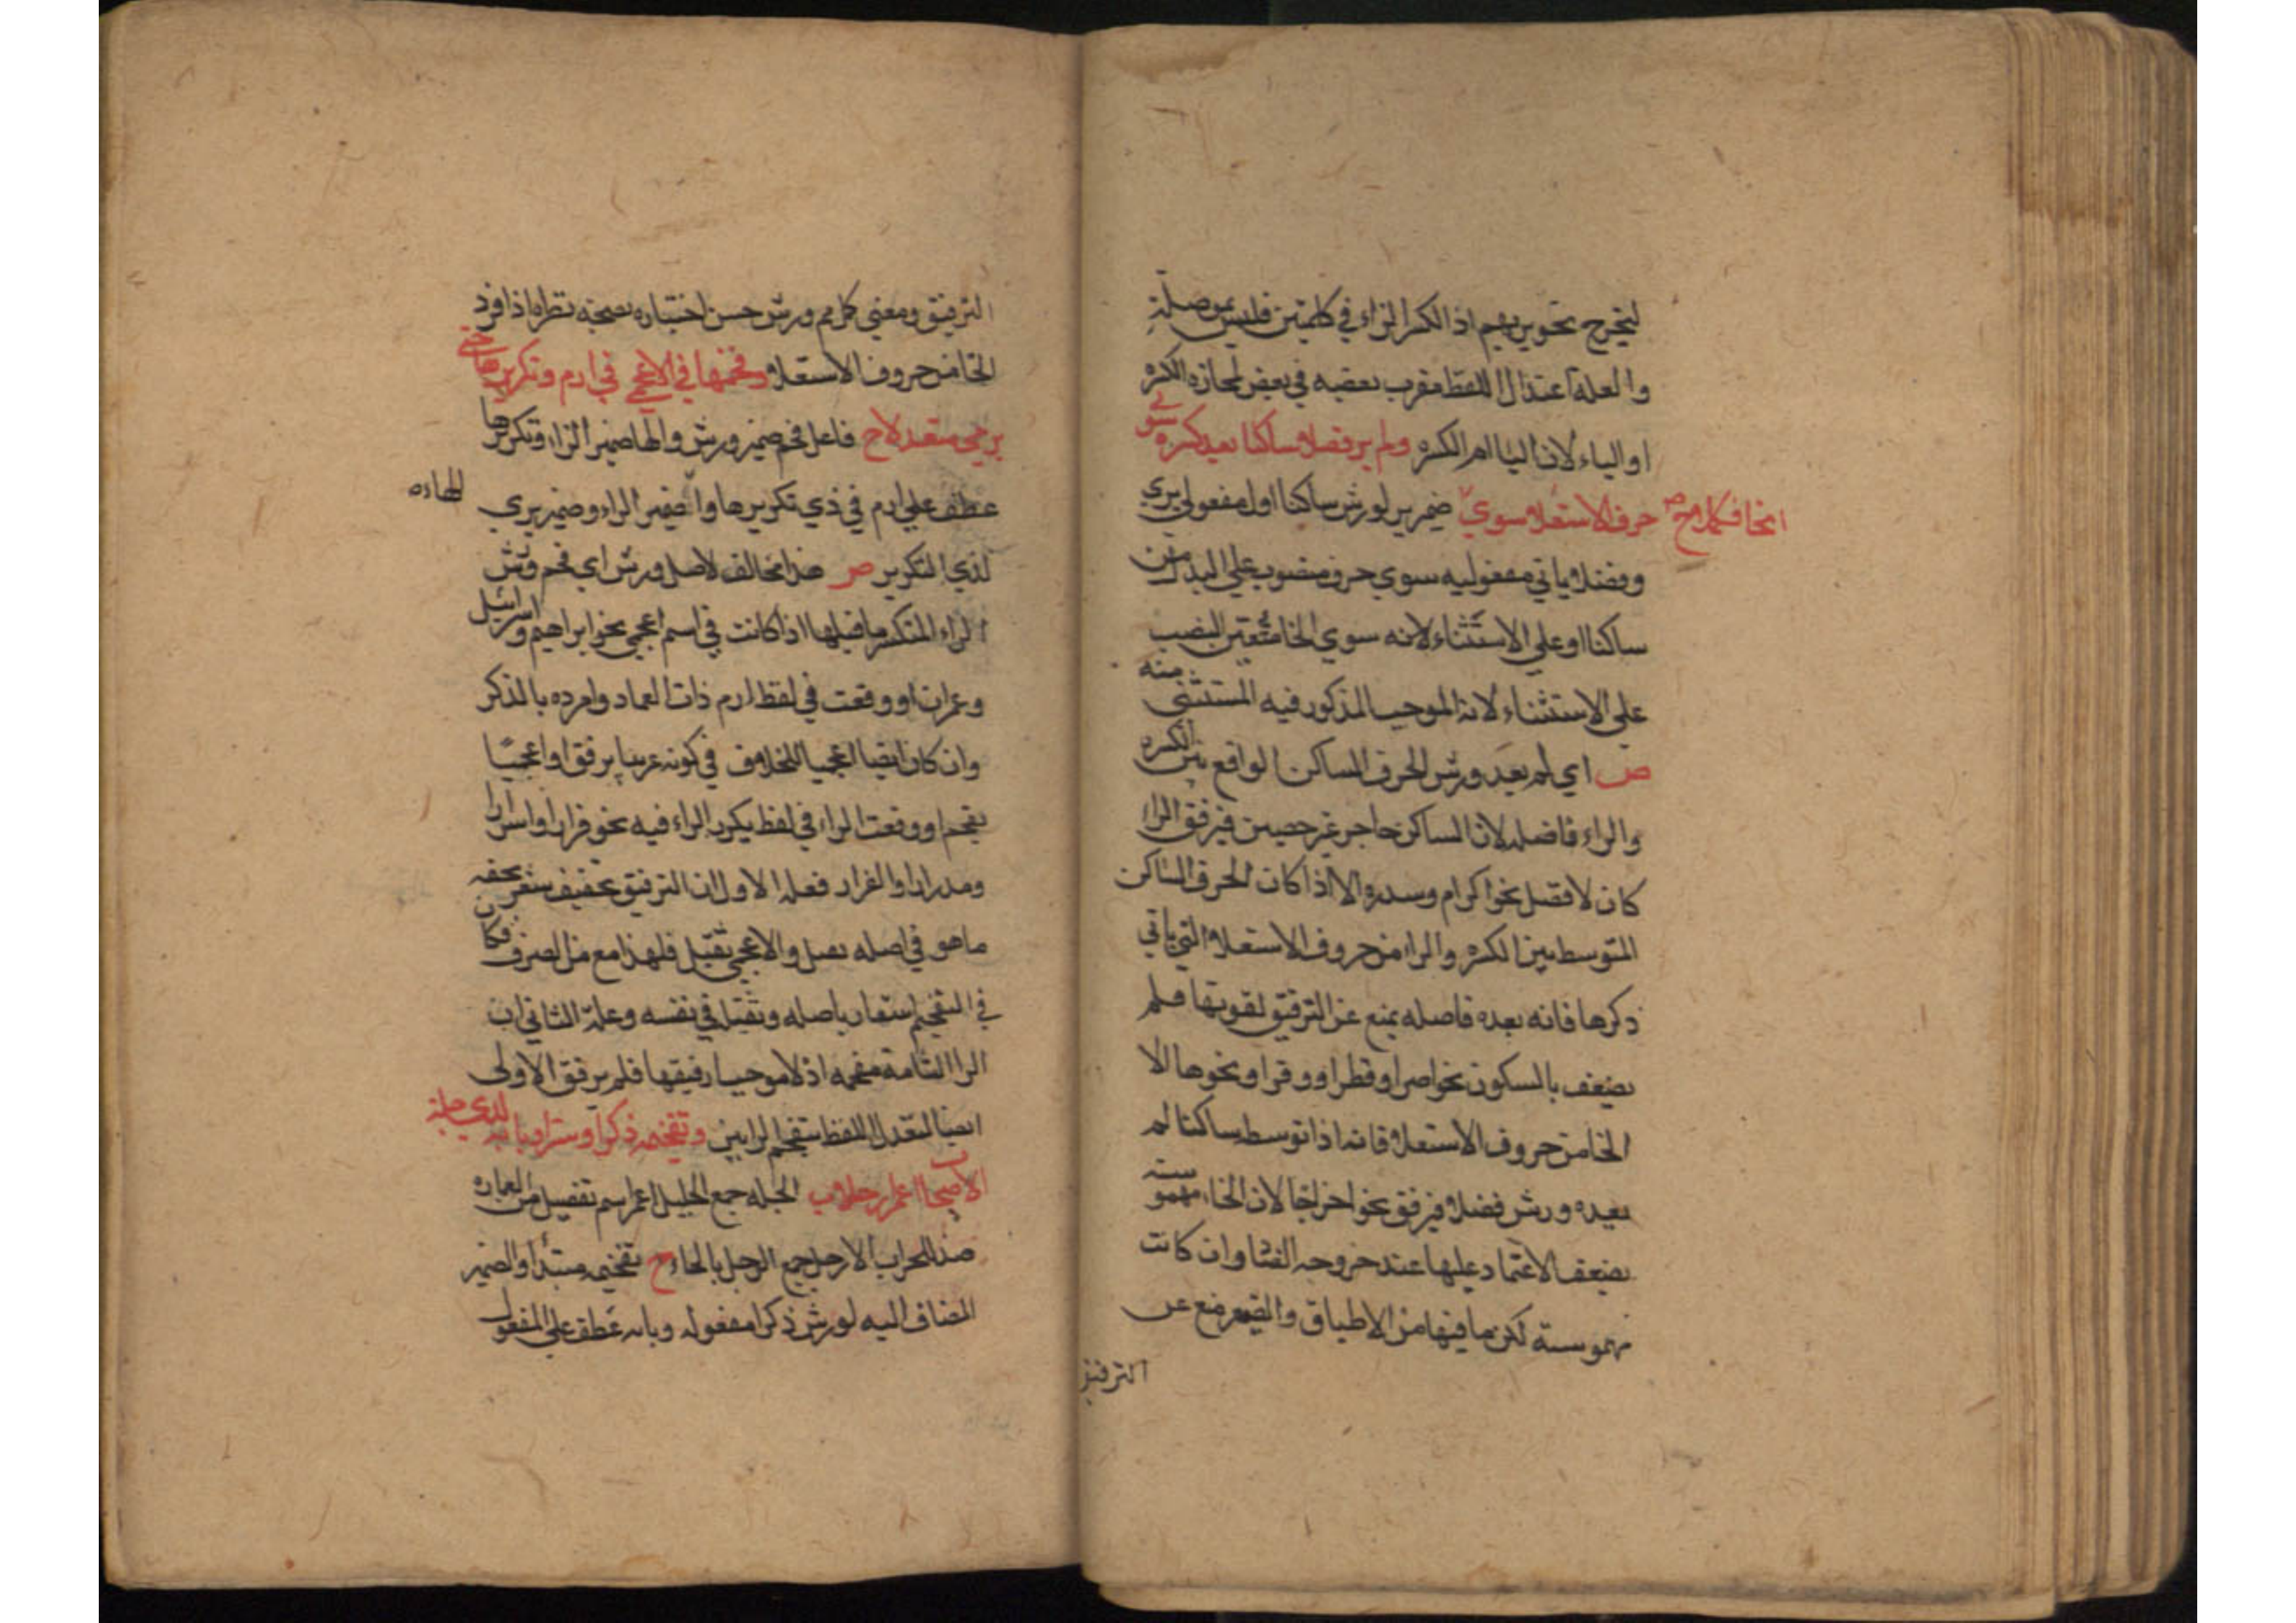 ليخرج نحو يريهم اذ الكسر الراء في كلمتين فليس بموصلة
والعلة اعتدال اللفظ مقرب بعضه في بعض لمجازه الكسره
او الياء لان اليا ام الكسره ولم ير فصلا ساكنا بعد كسره سوي
حرف الاستعلا سوي الخا فكملا ص ح ضمير ير لورش ساكنا اول مفعولي يري
وفصلا ثاني مفعوليه سوي حرف منصوب علي البدل من
ساكنا او علي الاستثناء لانه سوي الخا متعين النصب
علي الاستثناء لانه الموجب المذكور فيه المستثني منه
ص اي لم يعد ورش الحرف الساكن الواقع بين الكسره
والراء فاصلا لان الساكن حاجز غير حصين فيرفق الرا
كان لا فصل نحو اكرام وسدره الا اذا كان الحرف الساكن
المتوسط بين الكسره والراء من حروف الاستعلا التي ياتي
ذكرها فانه يعده فاصله يمنع عن الترقيق لقوتها فلم
يضعف بالسكون نحو اصرا وقطرا ووقرا ونحوها الا
الخا من حروف الاستعلا فانه اذا توسط ساكنا لم
يعده ورش فصلا فيرفق نحو اخراجا لان الخاء مهموسه
يضعف الاعتماد عليها عند خروجه الفا وان كانت
مهموسة لكن بما فيها من الاطباق والصفير منع عن
الترقيق
الترقيق ومعني كمل مم ورش حسن اختياره بصحه نظراه اذا فرد
الخا من حروف الاستعلا وفخمها في الاعجمي في ارم وتكريرها حتي
يري متعدلا ح فاعل فخم ضمير ورش والها ضمير الراء وتكريرها
عطف علي ارم في ذي تكريرها والضمير الراء وضمير يري
لذي التكرير ص هذا مخالف لاصل ورش اي فخم ورش
الراء المنكسر ما قبلها اذا كانت في اسم اعجمي نحو ابراهيم واسرائيل
وعمران او وقعت في لفظ ارم ذات العماد وافرده بالذكر
وان كان ايضا اعجميا للخلاف في كونه عربيا يرفق او اعجميا
يفخم او وقعت الراء في لفظ يكرر الراء فيه نحو فرارا واسرارا
ومدرارا والفرار فعله الاول ان الترقيق تخفيف
ما هو في اصله والاعجمي ثقيل فلهذا منع من الصرف فكان
في التفخيم اشعار باصله وثقيل في نفسه وعلة الثاني ان
الرا الثانية مفخمه اذ لا موجب لترقيقها فلم يرقق الاولي
ايضا لتعدل اللفظ بتفخيم الرايين وتفخيمه ذكرا وسترا وبابه لدي جلة
الاصحاب اعمر ارحلا ب الجلة جمع الجليل اعمر اسم تفضيل من العماره
ضد الخراب الارحل جمع الرحل بالحاء ح تفخيمه مبتدا والضمير
المضاف اليه لورش ذكرا مفعوله وبابه عطف علي المفعول